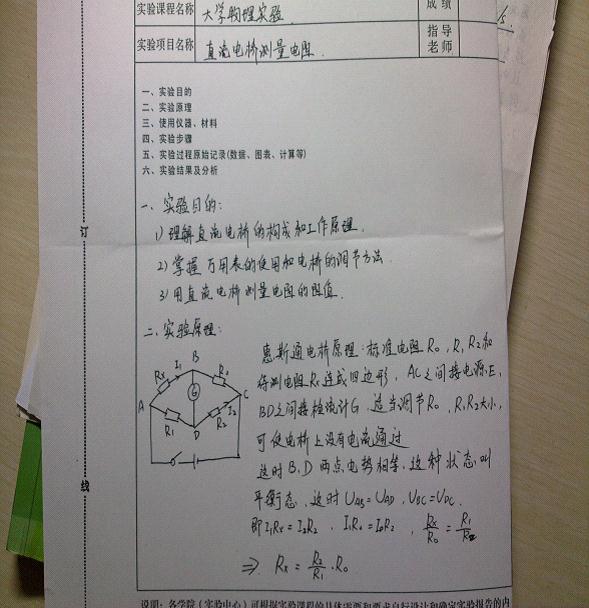 实验课程名称 大学物理实验 成绩
实验项目名称 直流电桥测量电阻. 指导老师
一、实验目的
二、实验原理
三、使用仪器、材料
四、实验步骤
五、实验过程原始记录(数据、图表、计算等)
六、实验结果及分析
一、实验目的:
1) 理解直流电桥的构成和工作原理.
2) 掌握万用表的使用和电桥的调节方法
3) 用直流电桥测量电阻的阻值.
二、实验原理:
惠斯通电桥原理:标准电阻R0,R1 R2和
待测电阻Rx连成四边形,AC之间接电源E,
BD之间接检流计G,适当调节R0,R1 R2大小,
可使电桥上没有电流通过
这时B、D两点电势相等,这种状态叫
平衡态,这时UAB=UAD,UBC=UDC.
即I1Rx=I2R1,I1R0=I2R2,Rx/R0=R1/R2
⇒ Rx=R2/R1·R0
B
Rx
I1
R0
G
A
C
R1
R2
I2
D
订
线
说明:各学院(实验中心)可根据实验课程的具体需要和要求自行设计和确定实验报告的内